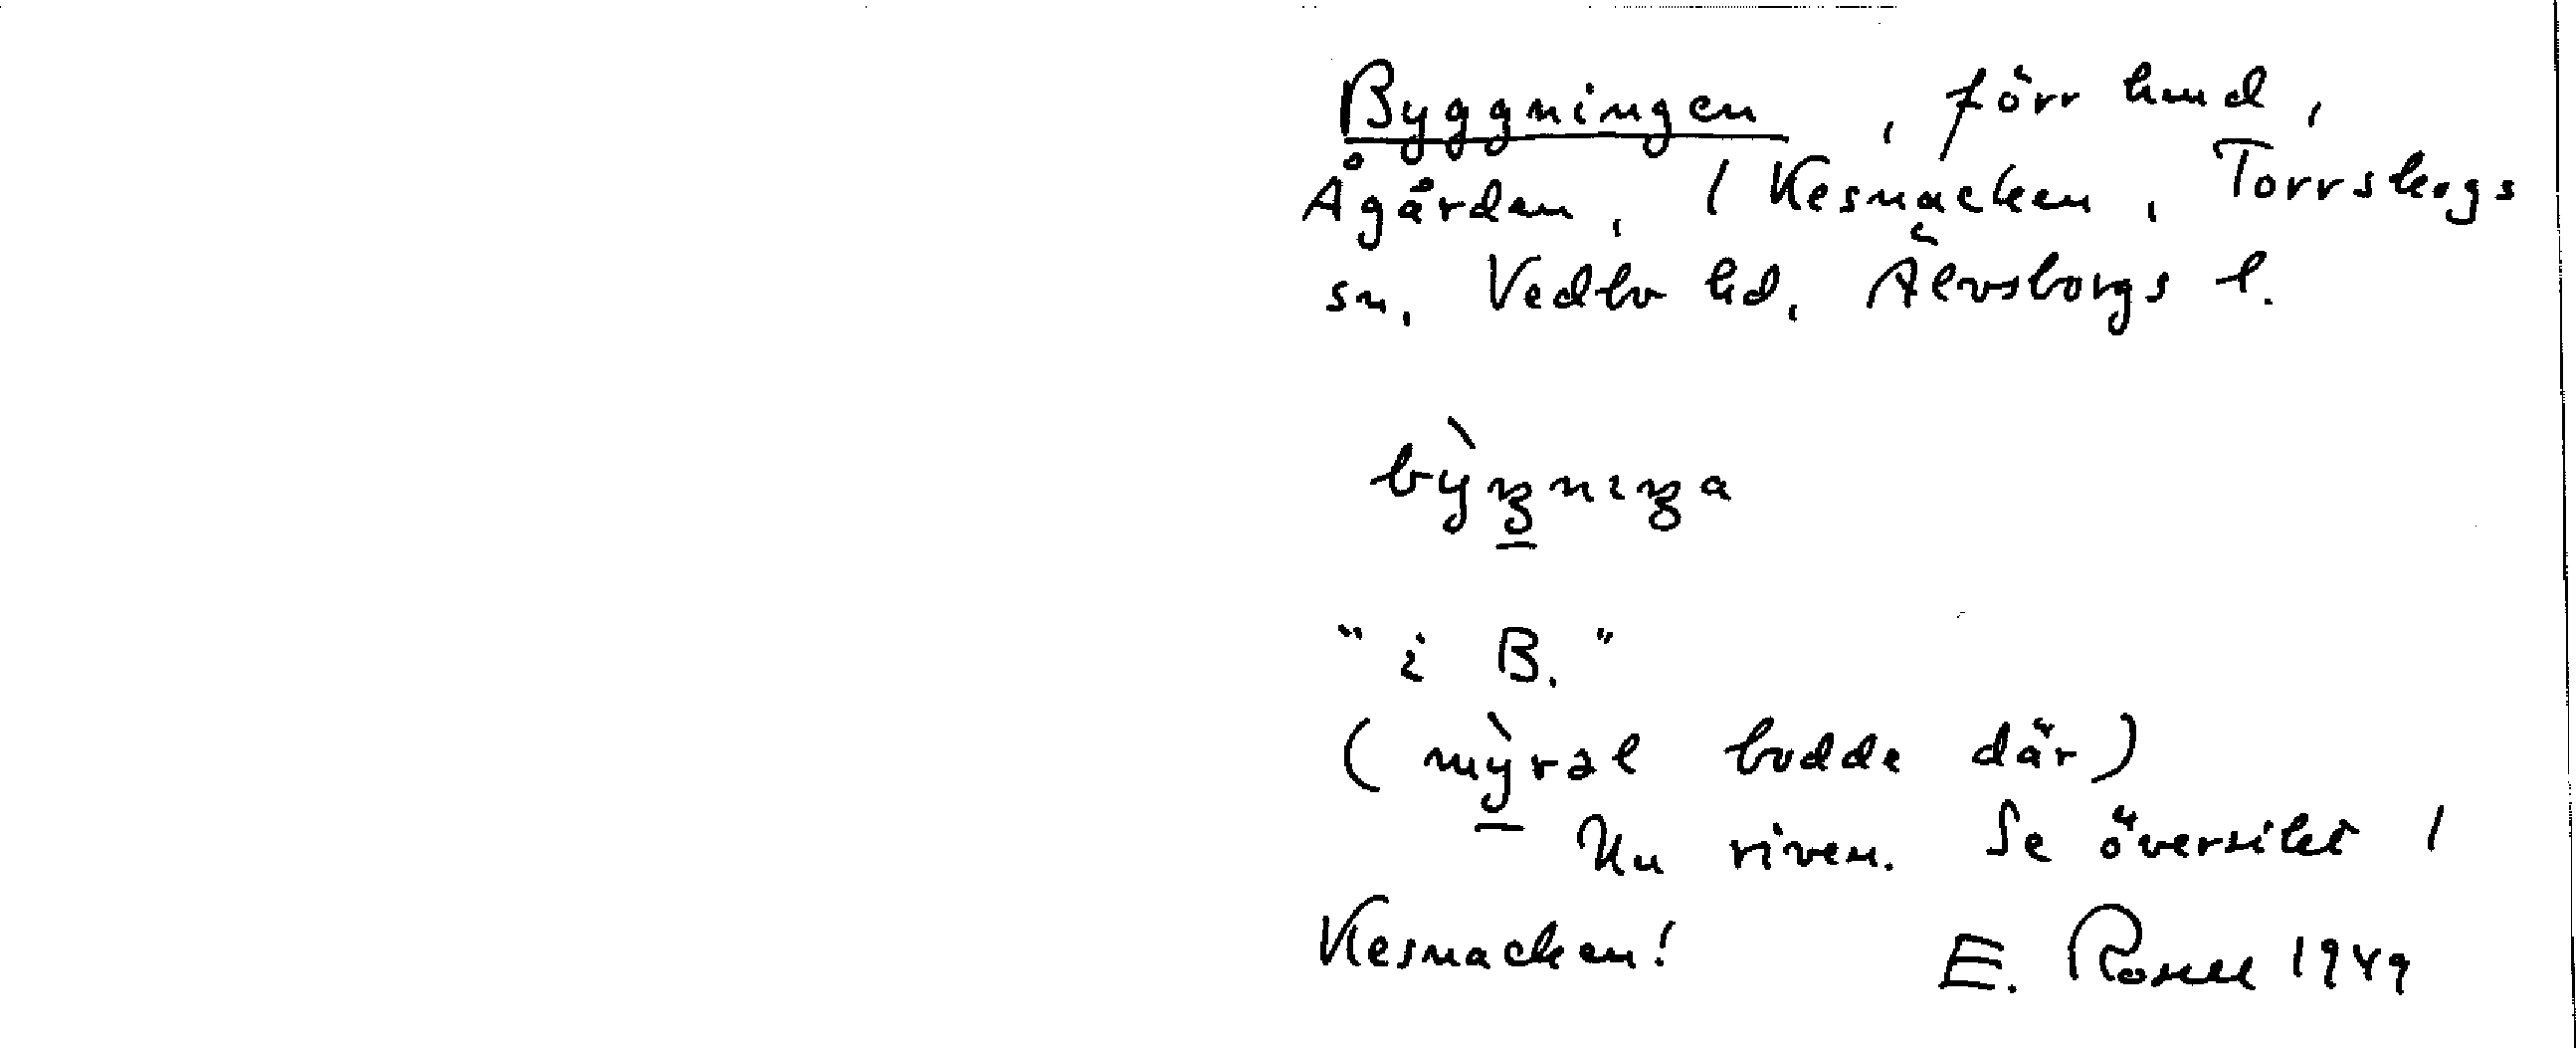 Byggningen, förr hmd,
Ågården, 1 Kesnacken, Torrskogs
sn, Vedbo hd, Älvsborgs l.
"i B."
(mỳ̲rəl bodde där)
Nu riven. Se översikt 1
Kesnacken! E. Rosell 1949